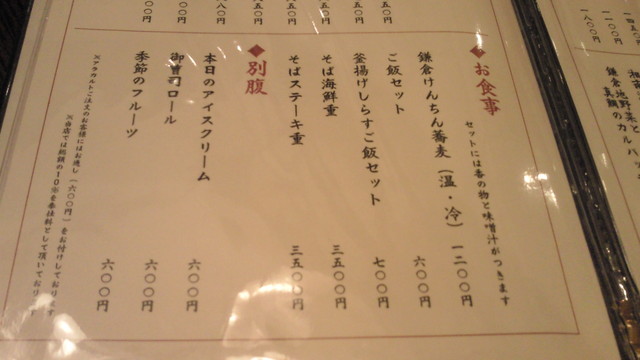 お食事
セットには香の物と味噌汁がつきます
鎌倉けんちん蕎麦（温・冷） 一二〇〇円
ご飯セット 六〇〇円
釜揚げしらすご飯セット 七〇〇円
そば海鮮重 三五〇〇円
そばステーキ重 三五〇〇円
別腹
本日のアイスクリーム 六〇〇円
御曹司ロール 六〇〇円
季節のフルーツ 六〇〇円
※アラカルトご注文のお客様にはお通し（六〇〇円）をお付けしております
※当店では総額の10％を奉仕料として頂いております